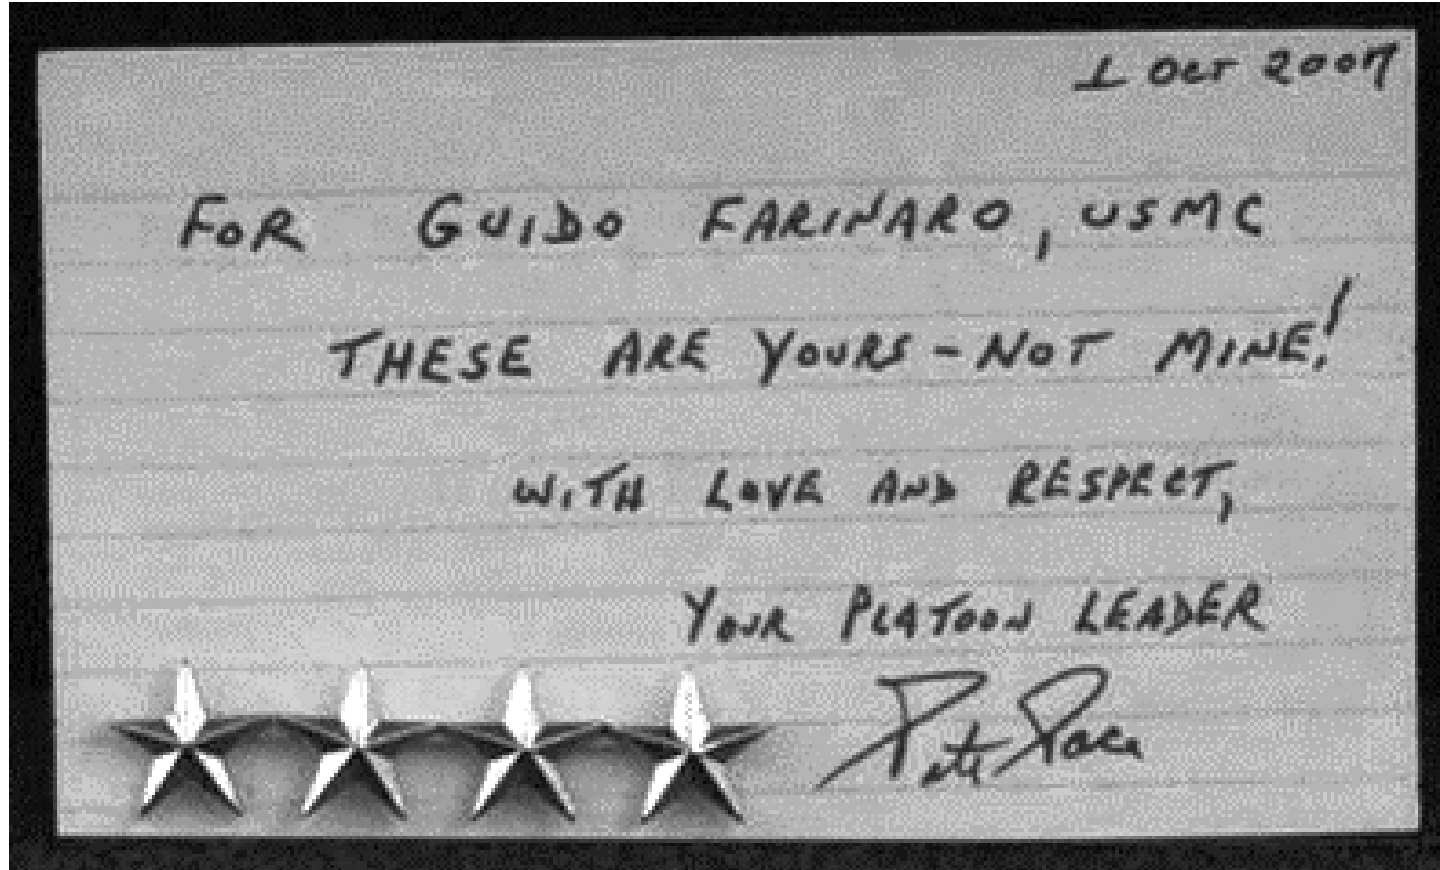 1 Oct 2007
FOR GUIDO FARINARO, USMC
THESE ARE YOURS - NOT MINE!
WITH LOVE AND RESPECT,
YOUR PLATOON LEADER
Pete Pace